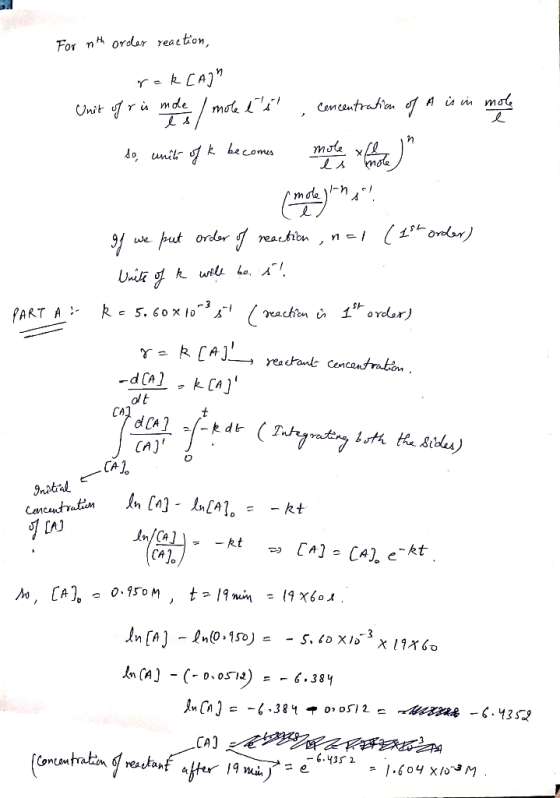 For nth order reaction,
r = k [A]^n
Unit of r is mole/l s / mole l^-1 s^-1 , concentration of A is in mole/l
so, units of k becomes mole/l s × (l/mole)^n
(mole/l)^1-n s^-1.
If we put order of reaction, n = 1 (1st order)
Units of k will be s^-1.
PART A :- k = 5.60 × 10^-3 s^-1 (reaction is 1st order)
r = k [A]^1 → reactant concentration.
-d[A]/dt = k [A]^1
∫_[A]₀^[A] d[A]/[A]^1 = ∫_0^t -k dt (Integrating both the sides)
Initial concentration of [A]
ln [A] - ln [A]₀ = -kt
ln ([A]/[A]₀) = -kt ⇒ [A] = [A]₀ e^-kt.
so, [A]₀ = 0.950M , t = 19 min = 19 × 60 s.
ln [A] - ln(0.950) = - 5.60 × 10^-3 × 19 × 60
ln [A] - (-0.0512) = - 6.384
ln [A] = -6.384 - 0.0512 = -6.4352
[A]
(concentration of reactant after 19 min) = e^-6.4352 = 1.604 × 10^-3 M.